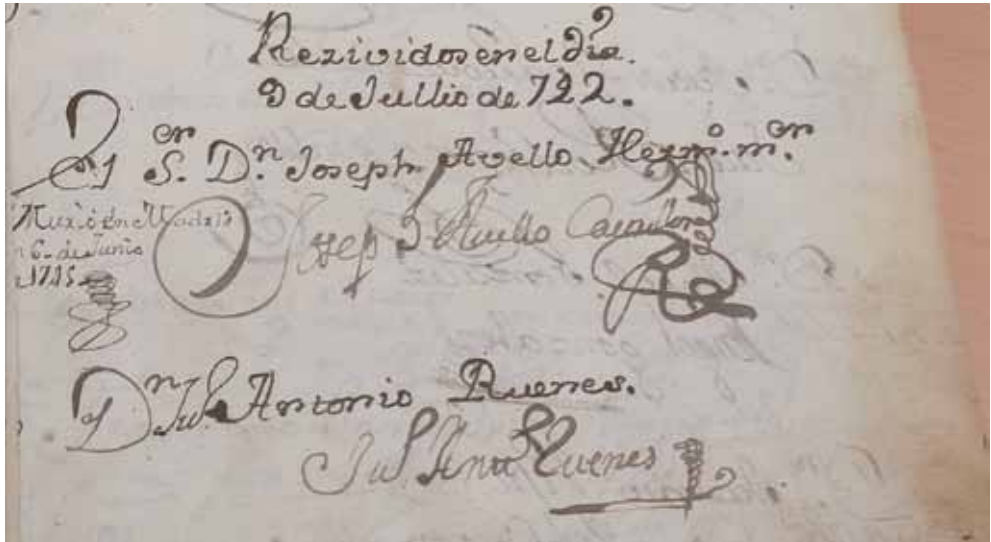 Rezividos en el dia.
9 de Jullio de 722.
El Sor. Dn. Joseph Avello Hermo. mor.
Murió en Madrid
en 6. de Junio
1735
Joseph Avello
Dn. Jul. Antonio Ruenes.
Jul Anto Ruenes